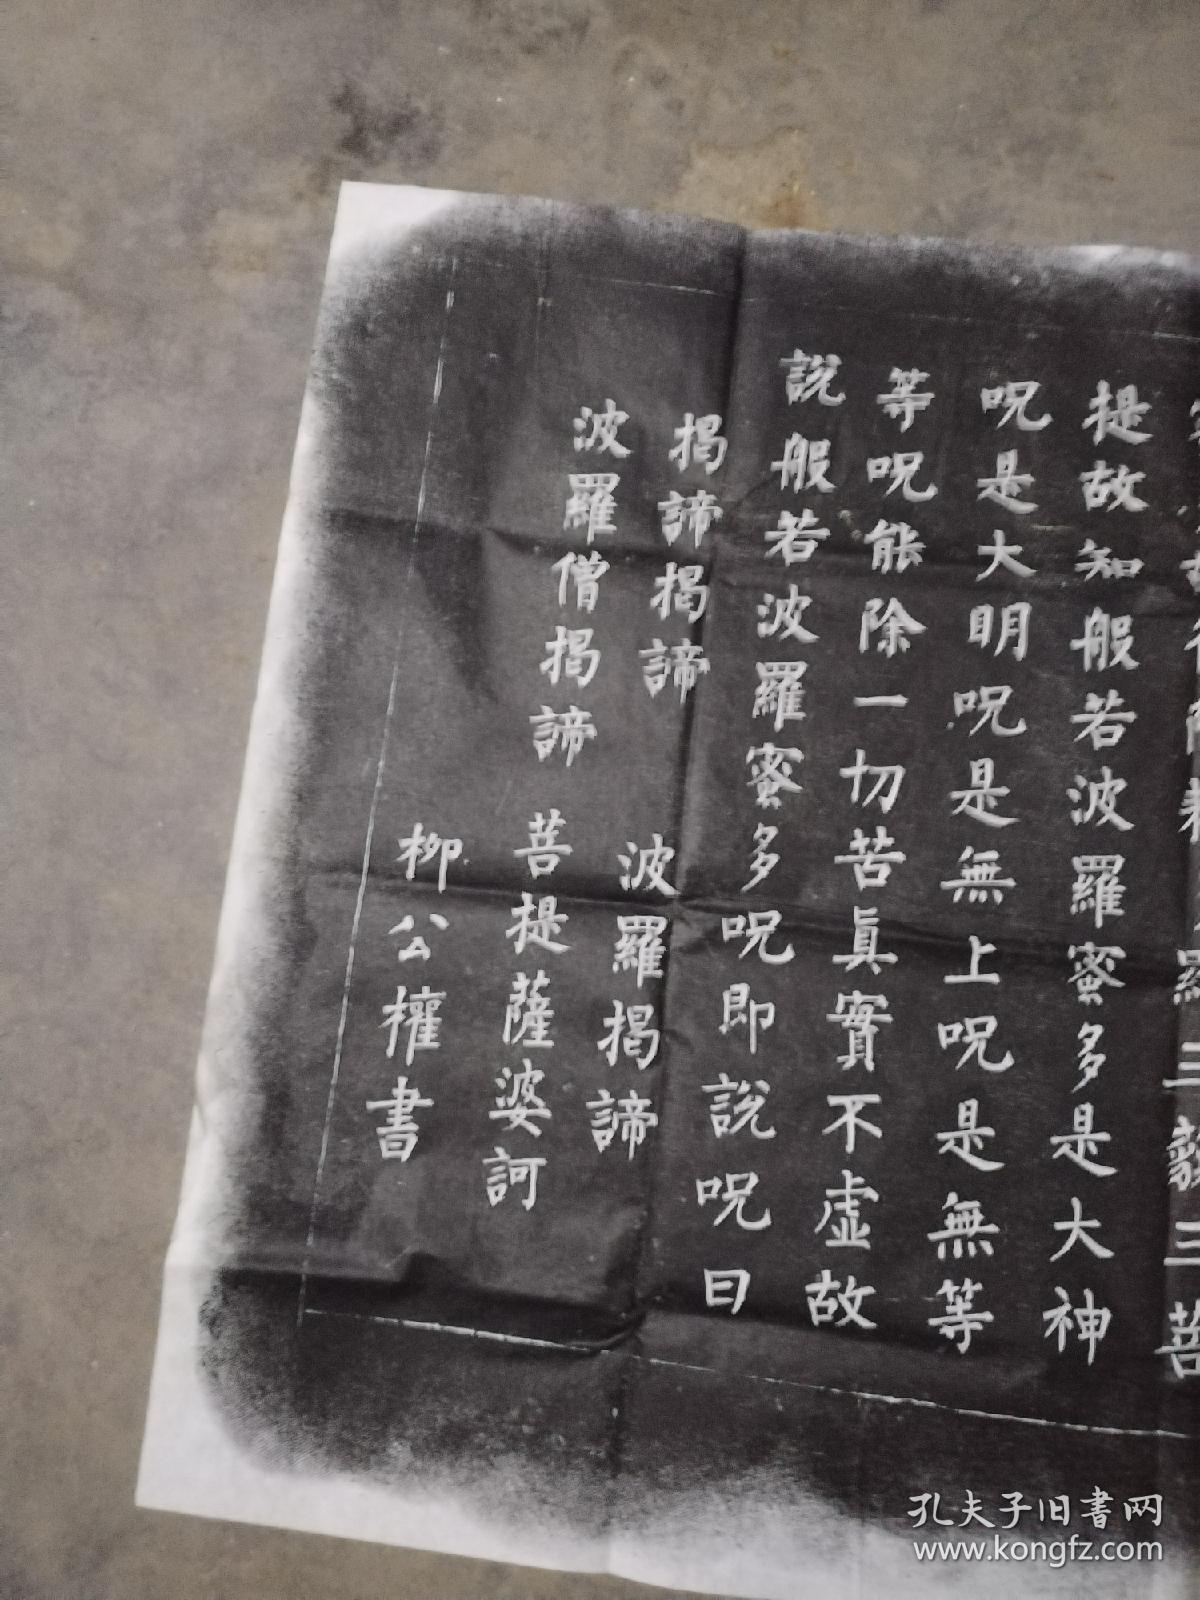 羅三藐三菩
提故知般若波羅蜜多是大神
呪是大明呪是無上呪是無等
等呪能除一切苦真實不虛故
說般若波羅蜜多呪即說呪曰
揭諦揭諦 波羅揭諦
波羅僧揭諦 菩提薩婆訶
柳公權書
孔夫子旧書网
www.kongfz.com